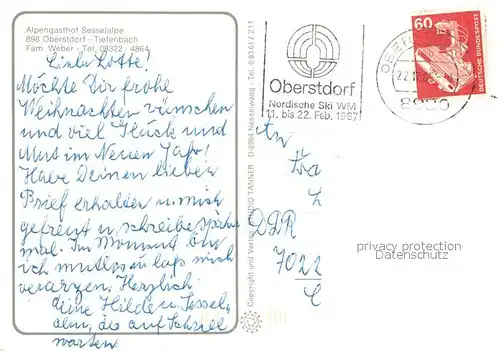 Alpengasthof Sesselalpe
898 Oberstdorf - Tiefenbach
Fam. Weber - Tel. 08322 - 4864
Liebe Lotte!
Möchte Dir frohe
Weihnachten wünschen
und viel Glück und
Mut im Neuen Jahr!
Habe Deinen lieben
Brief erhalten u. mich
gefreut u. schreibe später
mal. Im Moment bin
ich mutlos u. lass mich
verarzten. Herzlich
deine Hilde u. Sessel-
alm, die auf Schnee
warten
Copyright und Verlag TANNER D-8964 Nesselwang - Tel. 0 83 61 / 211
Oberstdorf
Nordische Ski WM
11. bis 22. Feb. 1987
60
DEUTSCHE BUNDESPOST
8980
An
DDR
7022
privacy protection
Datenschutz